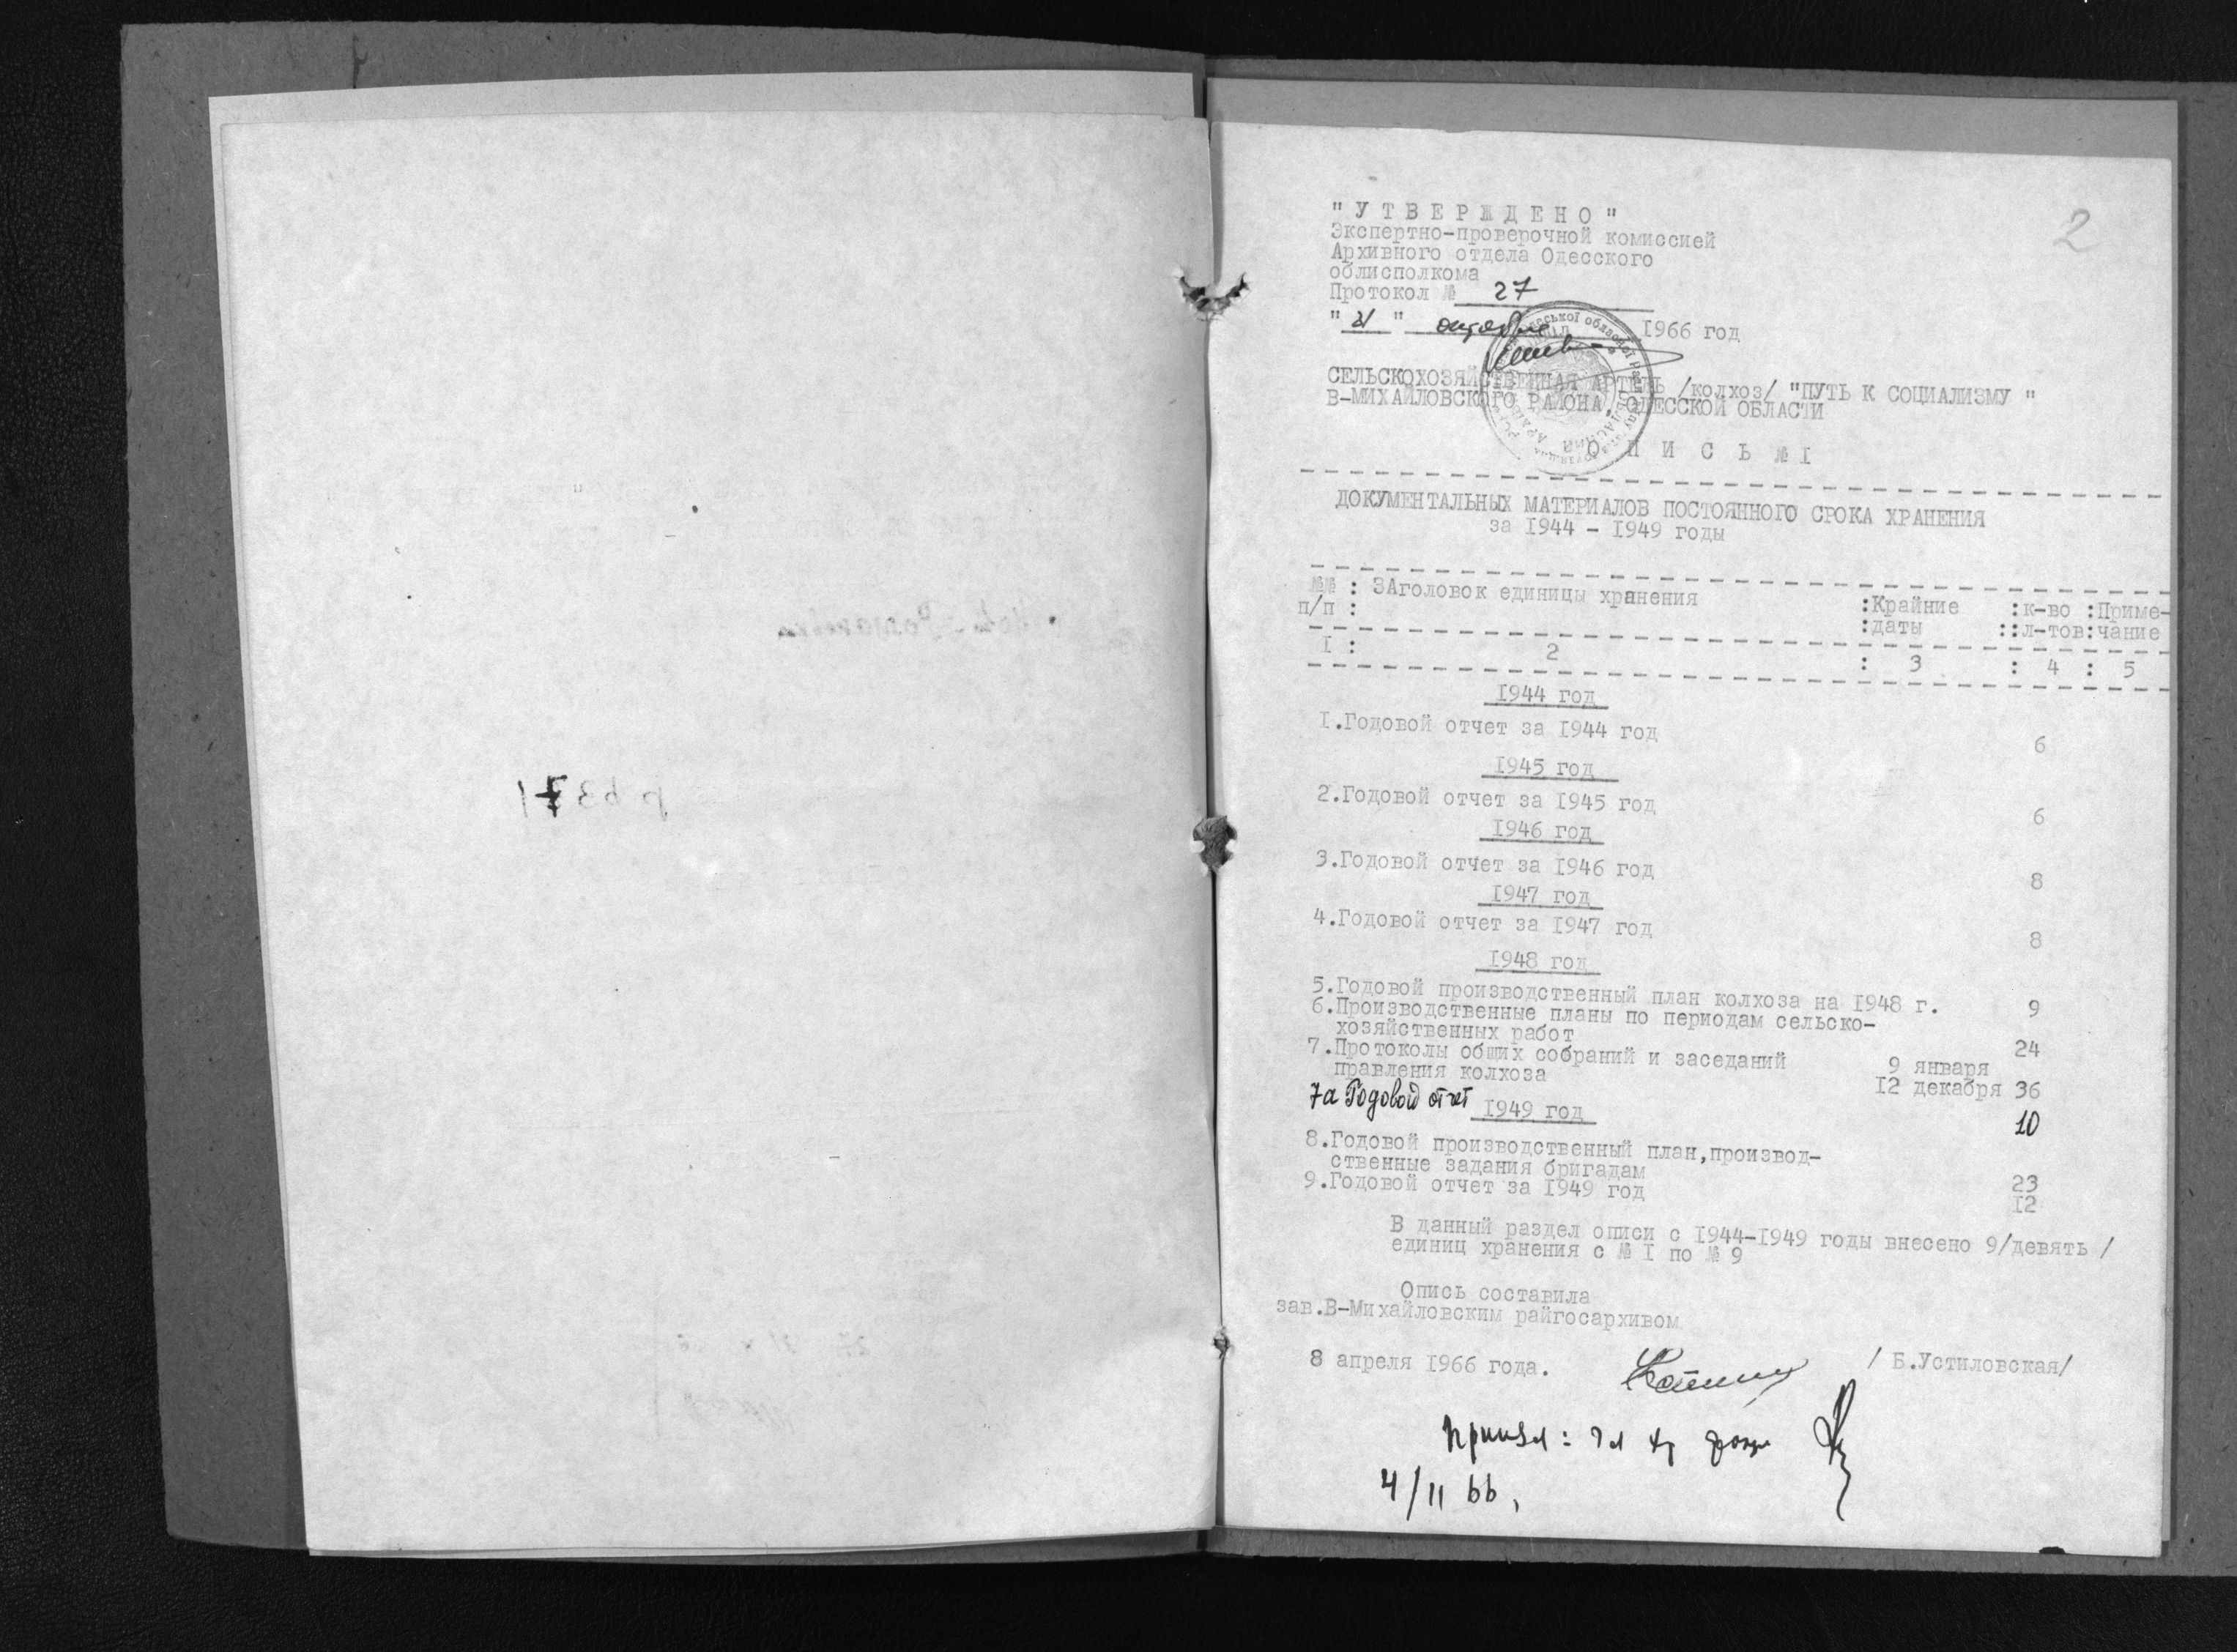 2
"УТВЕРЖДЕНО"
Экспертно-проверочной комиссией
Архивного отдела Одесского
облисполкома
Протокол № 27
"21" октября 1966 год
СЕЛЬСКОХОЗЯЙСТВЕННАЯ АРТЕЛЬ /колхоз/ "ПУТЬ К СОЦИАЛИЗМУ "
В-МИХАЙЛОВСКОГО РАЙОНА, ОДЕССКОЙ ОБЛАСТИ
О П И С Ь № I
ДОКУМЕНТАЛЬНЫХ МАТЕРИАЛОВ ПОСТОЯННОГО СРОКА ХРАНЕНИЯ
за I944 - I949 годы
№№ : ЗАголовок единицы хранения :Крайние :к-во :Приме-
п/п : :даты ::л-тов:чание
I : 2 : 3 : 4 : 5
I944 год
I.Годовой отчет за I944 год 6
I945 год
2.Годовой отчет за I945 год 6
I946 год
3.Годовой отчет за I946 год 8
I947 год
4.Годовой отчет за I947 год 8
I948 год
5.Годовой производственный план колхоза на I948 г. 9
6.Производственные планы по периодам сельско-
хозяйственных работ 24
7.Протоколы общих собраний и заседаний 9 января
правления колхоза I2 декабря 36
7а Годовой отчет 10
I949 год
8.Годовой производственный план,производ-
ственные задания бригадам 23
9.Годовой отчет за I949 год I2
В данный раздел описи с I944-I949 годы внесено 9/девять /
единиц хранения с № I по № 9
Опись составила
зав.В-Михайловским райгосархивом
8 апреля I966 года. / Б.Устиловская/
4/II 66,